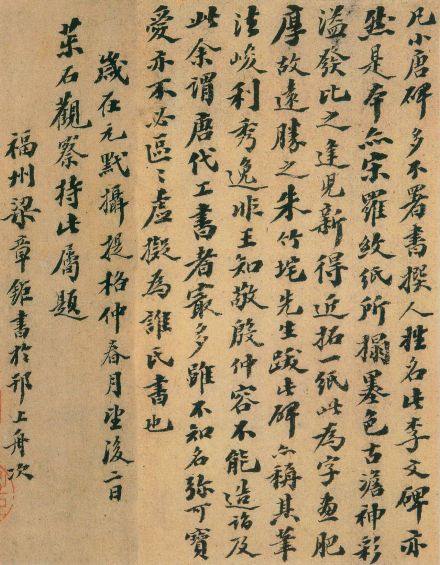 凡小唐碑多不署書撰人姓名此李文碑亦
然是本亦宋羅紋紙所搨墨色古澹神彩
溢發比之逢見新得近拓一紙此為字畫肥
厚故遠勝之朱竹垞先生跋此碑亦稱其筆
法峻利秀逸非王知敬殷仲容不能造詣及
此余謂唐代工書者㝡多雖不知名弥可寶
愛亦不必區〻虛擬為誰氏書也
歲在元黓攝提格仲春月望後二日
茮石觀察持此屬題
福州梁章鉅書於邗上舟次